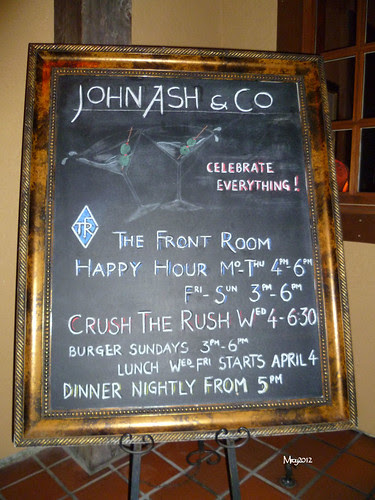 JOHN ASH & CO
CELEBRATE
EVERYTHING!
TFR
THE FRONT ROOM
HAPPY HOUR MO-THU 4PM-6PM
FRI-SUN 3PM-6PM
CRUSH THE RUSH WED 4-6:30
BURGER SUNDAYS 3PM-6PM
LUNCH WED-FRI STARTS APRIL 4
DINNER NIGHTLY FROM 5PM